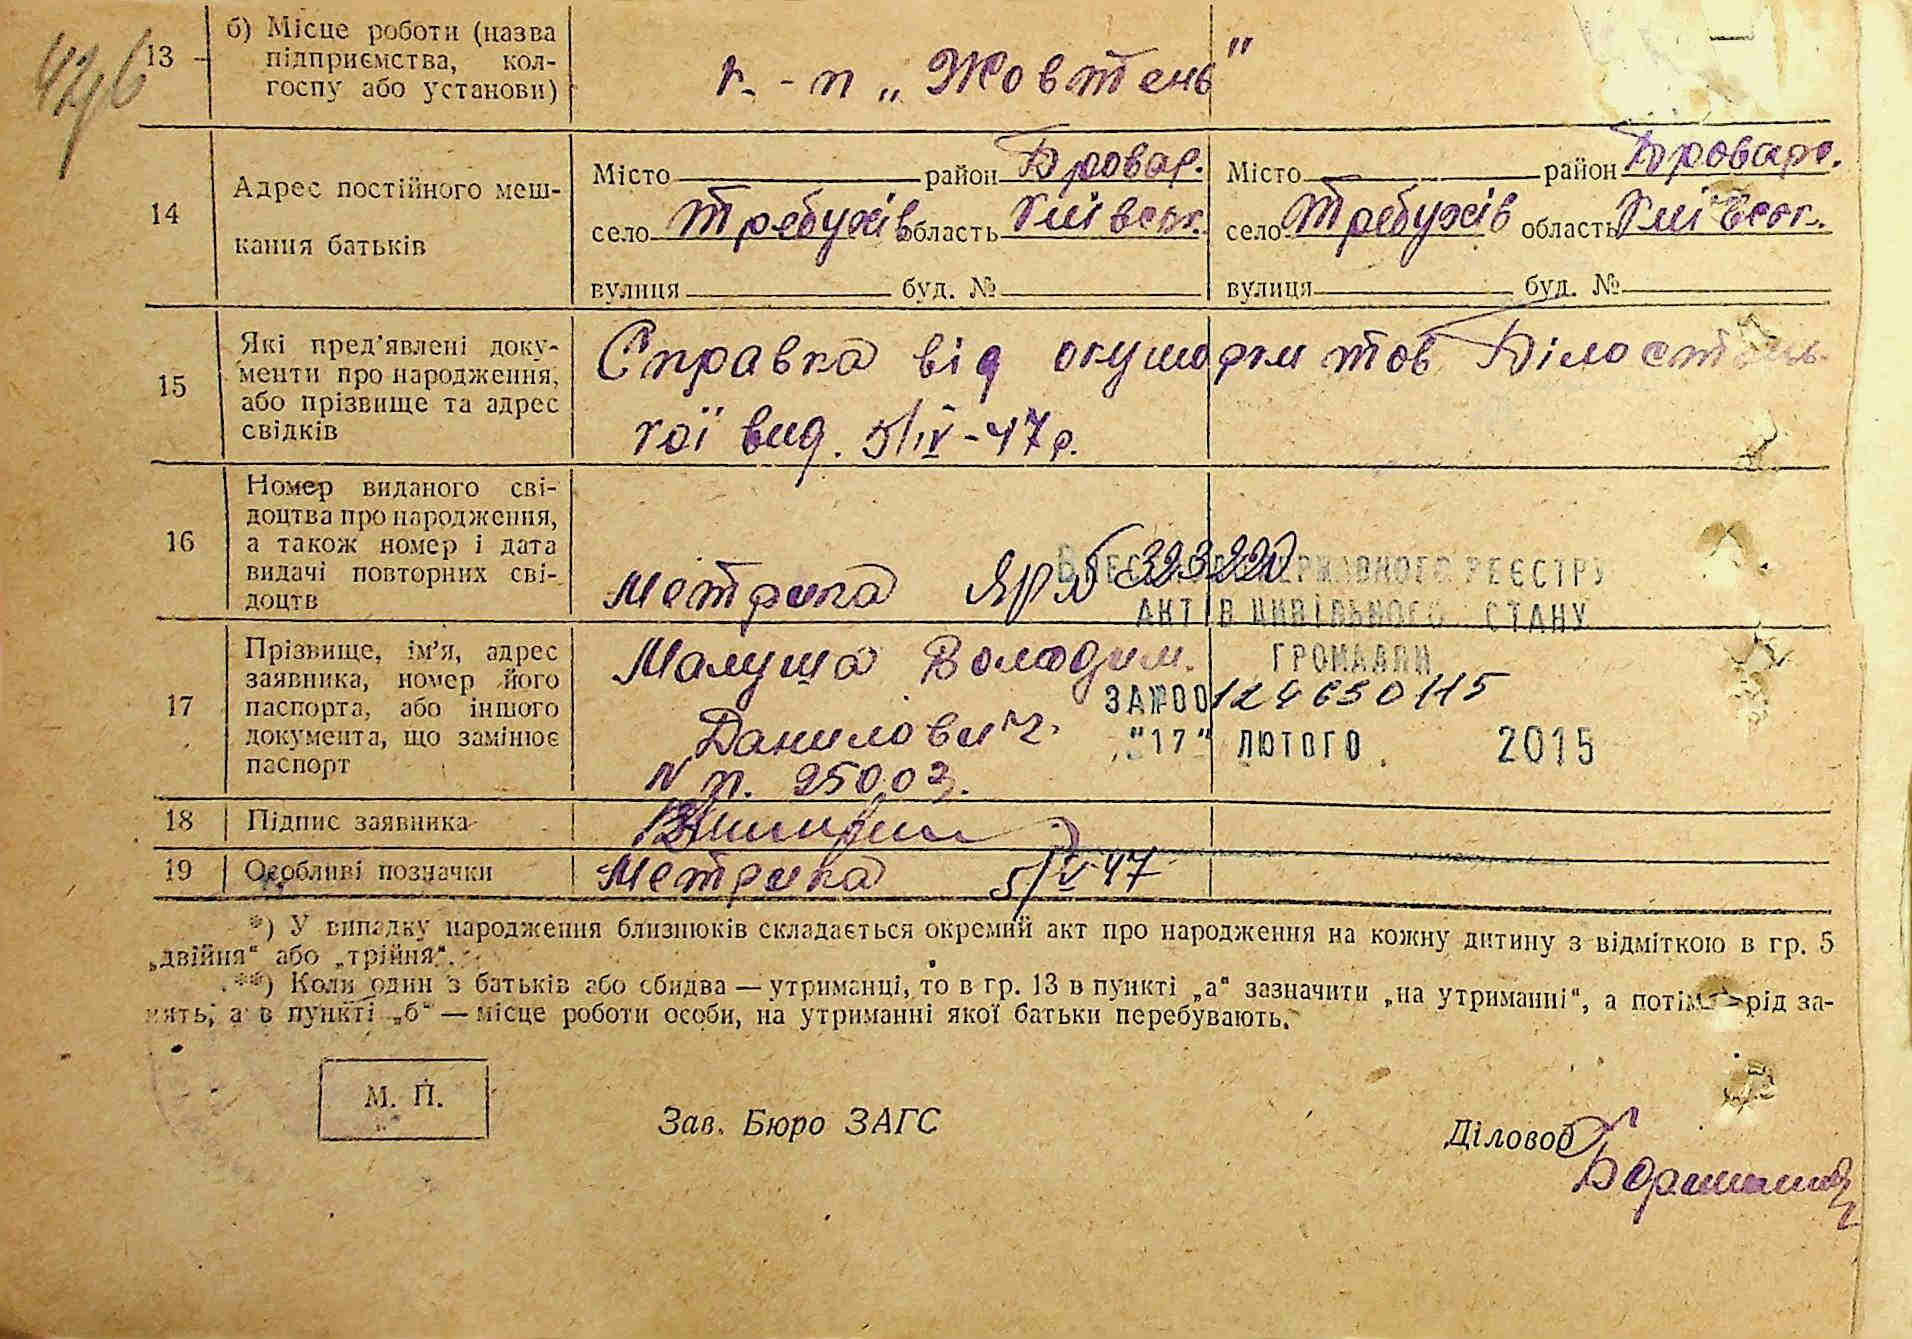 13 б) Місце роботи (назва
підприємства, кол-
госпу або установи)
к-п „Жовтень"
14 Адрес постійного меш-
кання батьків
Місто район Бровар.
село Требухів область Київськ.
вулиця буд. №
Місто район Бровар.
село Требухів область Київськ.
вулиця буд. №
15 Які пред'явлені доку-
менти про народження,
або прізвище та адрес
свідків
Справка від акушорки тов Білостоць-
кої вид. 5/IV-47р.
16 Номер виданого сві-
доцтва про народження,
а також номер і дата
видачі повторних сві-
доцтв
Метрика ЯР № 323220
ДЕРЖАВНОГО РЕЄСТРУ
АКТІВ ЦИВІЛЬНОГО СТАНУ
ГРОМАДЯН
ЗА №00124650115
"17" ЛЮТОГО 2015
17 Прізвище, ім'я, адрес
заявника, номер його
паспорта, або іншого
документа, що замінює
паспорт
Малуша Володим.
Данилович.
N п. 25002.
18 Підпис заявника
19 Особливі позначки
Метрика 5/IV-47
*) У випадку народження близнюків складається окремий акт про народження на кожну дитину з відміткою в гр. 5
„двійня" або „трійня".
**) Коли один з батьків або обидва — утриманці, то в гр. 13 в пункті „а" зазначити „на утриманні", а потім — рід за-
нять, а в пункті „б" — місце роботи особи, на утриманні якої батьки перебувають.
М. П.
Зав. Бюро ЗАГС
Діловод